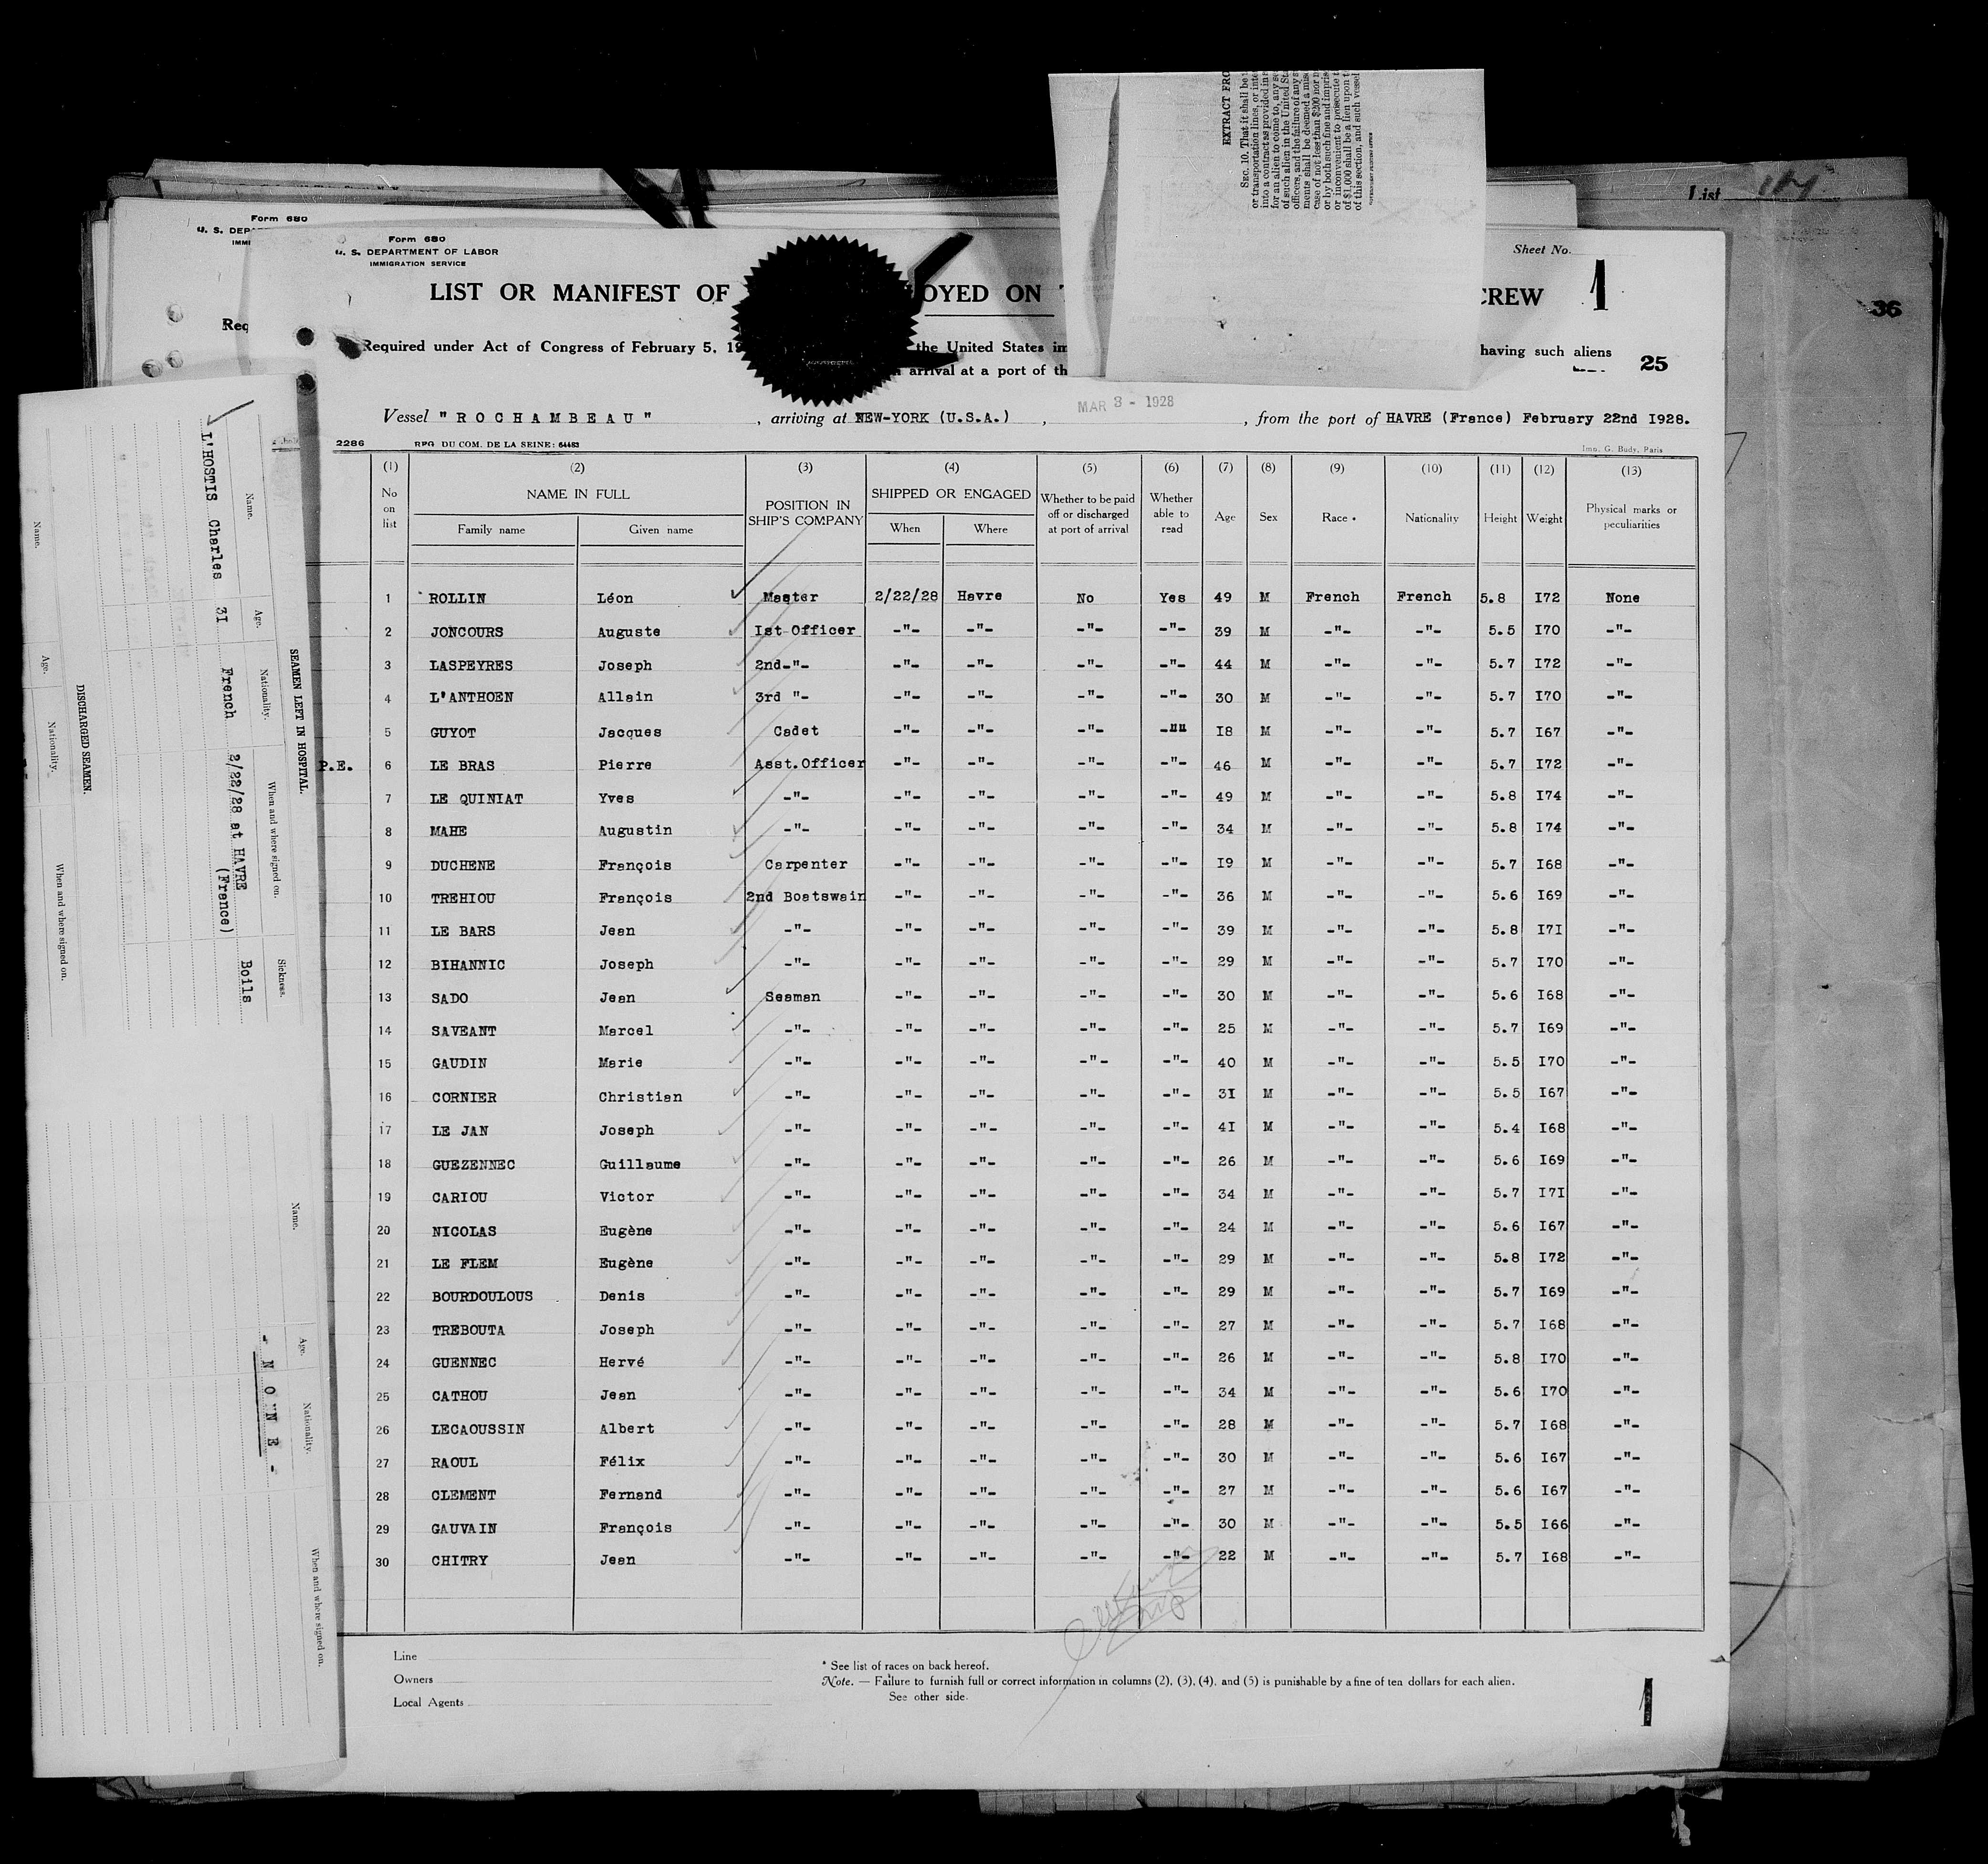 EXTRACT FRO
SEC. 10. That it shall be
or transportation lines, or inte
into a contract as provided in
for an alien to come to, any se
of such alien in the United Sta
officers, and the failure of any
ments shall be deemed a mis
case of not less than $200 nor
or by both such fine and impris
or inconvenient to prosecute
of $1,000 shall be a lien upon t
of this section, and such vessel
List
36
Form 680
U. S. DEP
IMMI
Req
Form 680
U. S. DEPARTMENT OF LABOR
IMMIGRATION SERVICE
Sheet No.
LIST OR MANIFEST OF OYED ON CREW 1
Required under Act of Congress of February 5, 19 the United States im having such aliens 25
arrival at a port of th
MAR 3 - 1928
Vessel " R O C H A M B E A U " , arriving at NEW-YORK (U.S.A.) , , from the port of HAVRE (France) February 22nd I928.
2286 RPG DU COM. DE LA SEINE: 64483 Imp. G. Budy, Paris
(1) (2) (3) (4) (5) (6) (7) (8) (9) (10) (11) (12) (13)
No on list NAME IN FULL POSITION IN SHIP'S COMPANY SHIPPED OR ENGAGED Whether to be paid off or discharged at port of arrival Whether able to read Age Sex Race * Nationality Height Weight Physical marks or peculiarities
Family name Given name When Where
1 ROLLIN Léon Master 2/22/28 Havre No Yes 49 M French French 5.8 I72 None
2 JONCOURS Auguste Ist Officer -"- -"- -"- -"- 39 M -"- -"- 5.5 I70 -"-
3 LASPEYRES Joseph 2nd-"- -"- -"- -"- -"- 44 M -"- -"- 5.7 I72 -"-
4 L'ANTHOEN Allain 3rd "- -"- -"- -"- -"- 30 M -"- -"- 5.7 I70 -"-
5 GUYOT Jacques Cadet -"- -"- -"- -"" I8 M -"- -"- 5.7 I67 -"-
P.E. 6 LE BRAS Pierre Asst.Officer -"- -"- -"- -"- 46 M -"- -"- 5.7 I72 -"-
7 LE QUINIAT Yves -"- -"- -"- -"- -"- 49 M -"- -"- 5.8 I74 -"-
8 MAHE Augustin -"- -"- -"- -"- -"- 34 M -"- -"- 5.8 I74 -"-
9 DUCHENE François Carpenter -"- -"- -"- -"- I9 M -"- -"- 5.7 I68 -"-
10 TREHIOU François 2nd Boatswain -"- -"- -"- -"- 36 M -"- -"- 5.6 I69 -"-
11 LE BARS Jean -"- -"- -"- -"- -"- 39 M -"- -"- 5.8 I7I -"-
12 BIHANNIC Joseph -"- -"- -"- -"- -"- 29 M -"- -"- 5.7 I70 -"-
13 SADO Jean Seaman -"- -"- -"- -"- 30 M -"- -"- 5.6 I68 -"-
14 SAVEANT Marcel -"- -"- -"- -"- -"- 25 M -"- -"- 5.7 I69 -"-
15 GAUDIN Marie -"- -"- -"- -"- -"- 40 M -"- -"- 5.5 I70 -"-
16 CORNIER Christian -"- -"- -"- -"- -"- 3I M -"- -"- 5.5 I67 -"-
17 LE JAN Joseph -"- -"- -"- -"- -"- 4I M -"- -"- 5.4 I68 -"-
18 GUEZENNEC Guillaume -"- -"- -"- -"- -"- 26 M -"- -"- 5.6 I69 -"-
19 CARIOU Victor -"- -"- -"- -"- -"- 34 M -"- -"- 5.7 I7I -"-
20 NICOLAS Eugène -"- -"- -"- -"- -"- 24 M -"- -"- 5.6 I67 -"-
21 LE FLEM Eugène -"- -"- -"- -"- -"- 29 M -"- -"- 5.8 I72 -"-
22 BOURDOULOUS Denis -"- -"- -"- -"- -"- 29 M -"- -"- 5.7 I69 -"-
23 TREBOUTA Joseph -"- -"- -"- -"- -"- 27 M -"- -"- 5.7 I68 -"-
24 GUENNEC Hervé -"- -"- -"- -"- -"- 26 M -"- -"- 5.8 I70 -"-
25 CATHOU Jean -"- -"- -"- -"- -"- 34 M -"- -"- 5.6 I70 -"-
26 LECAOUSSIN Albert -"- -"- -"- -"- -"- 28 M -"- -"- 5.7 I68 -"-
27 RAOUL Félix -"- -"- -"- -"- -"- 30 M -"- -"- 5.6 I67 -"-
28 CLEMENT Fernand -"- -"- -"- -"- -"- 27 M -"- -"- 5.6 I67 -"-
29 GAUVAIN François -"- -"- -"- -"- -"- 30 M -"- -"- 5.5 I66 -"-
30 CHITRY Jean -"- -"- -"- -"- -"- 22 M -"- -"- 5.7 I68 -"-
Line
Owners
Local Agents
* See list of races on back hereof.
Note. — Failure to furnish full or correct information in columns (2), (3), (4), and (5) is punishable by a fine of ten dollars for each alien.
See other side.
1
SEAMEN LEFT IN HOSPITAL.
Name. Age. Nationality. When and where signed on. Sickness.
L'HOSTIS Charles 3I French 2/22/28 at HAVRE Boils
(France)
DISCHARGED SEAMEN.
Name. Age. Nationality. When and where signed on.
Name. Age. Nationality. When and where signed on.
- N O N E -